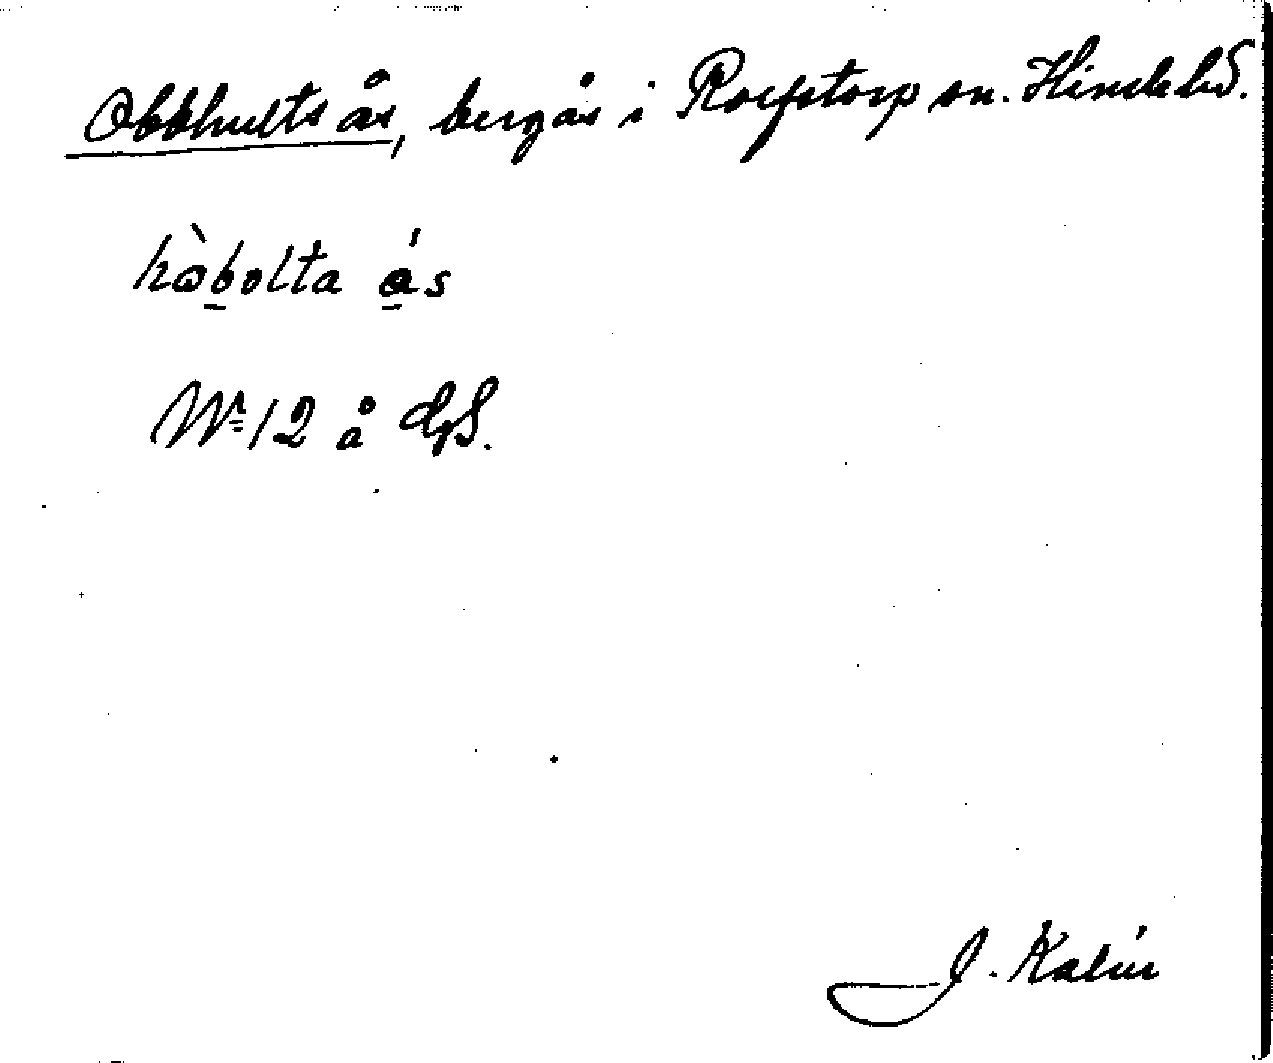 Obbhults ås, bergås i Rolfstorp sn. Himle hd.
hòbolta ás
Nº 12 å
J. Kalén